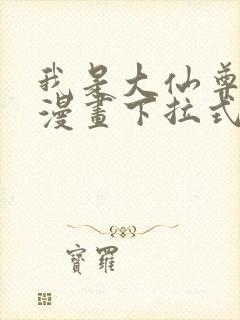 我是大仙尊
漫畫下拉式
寶羅